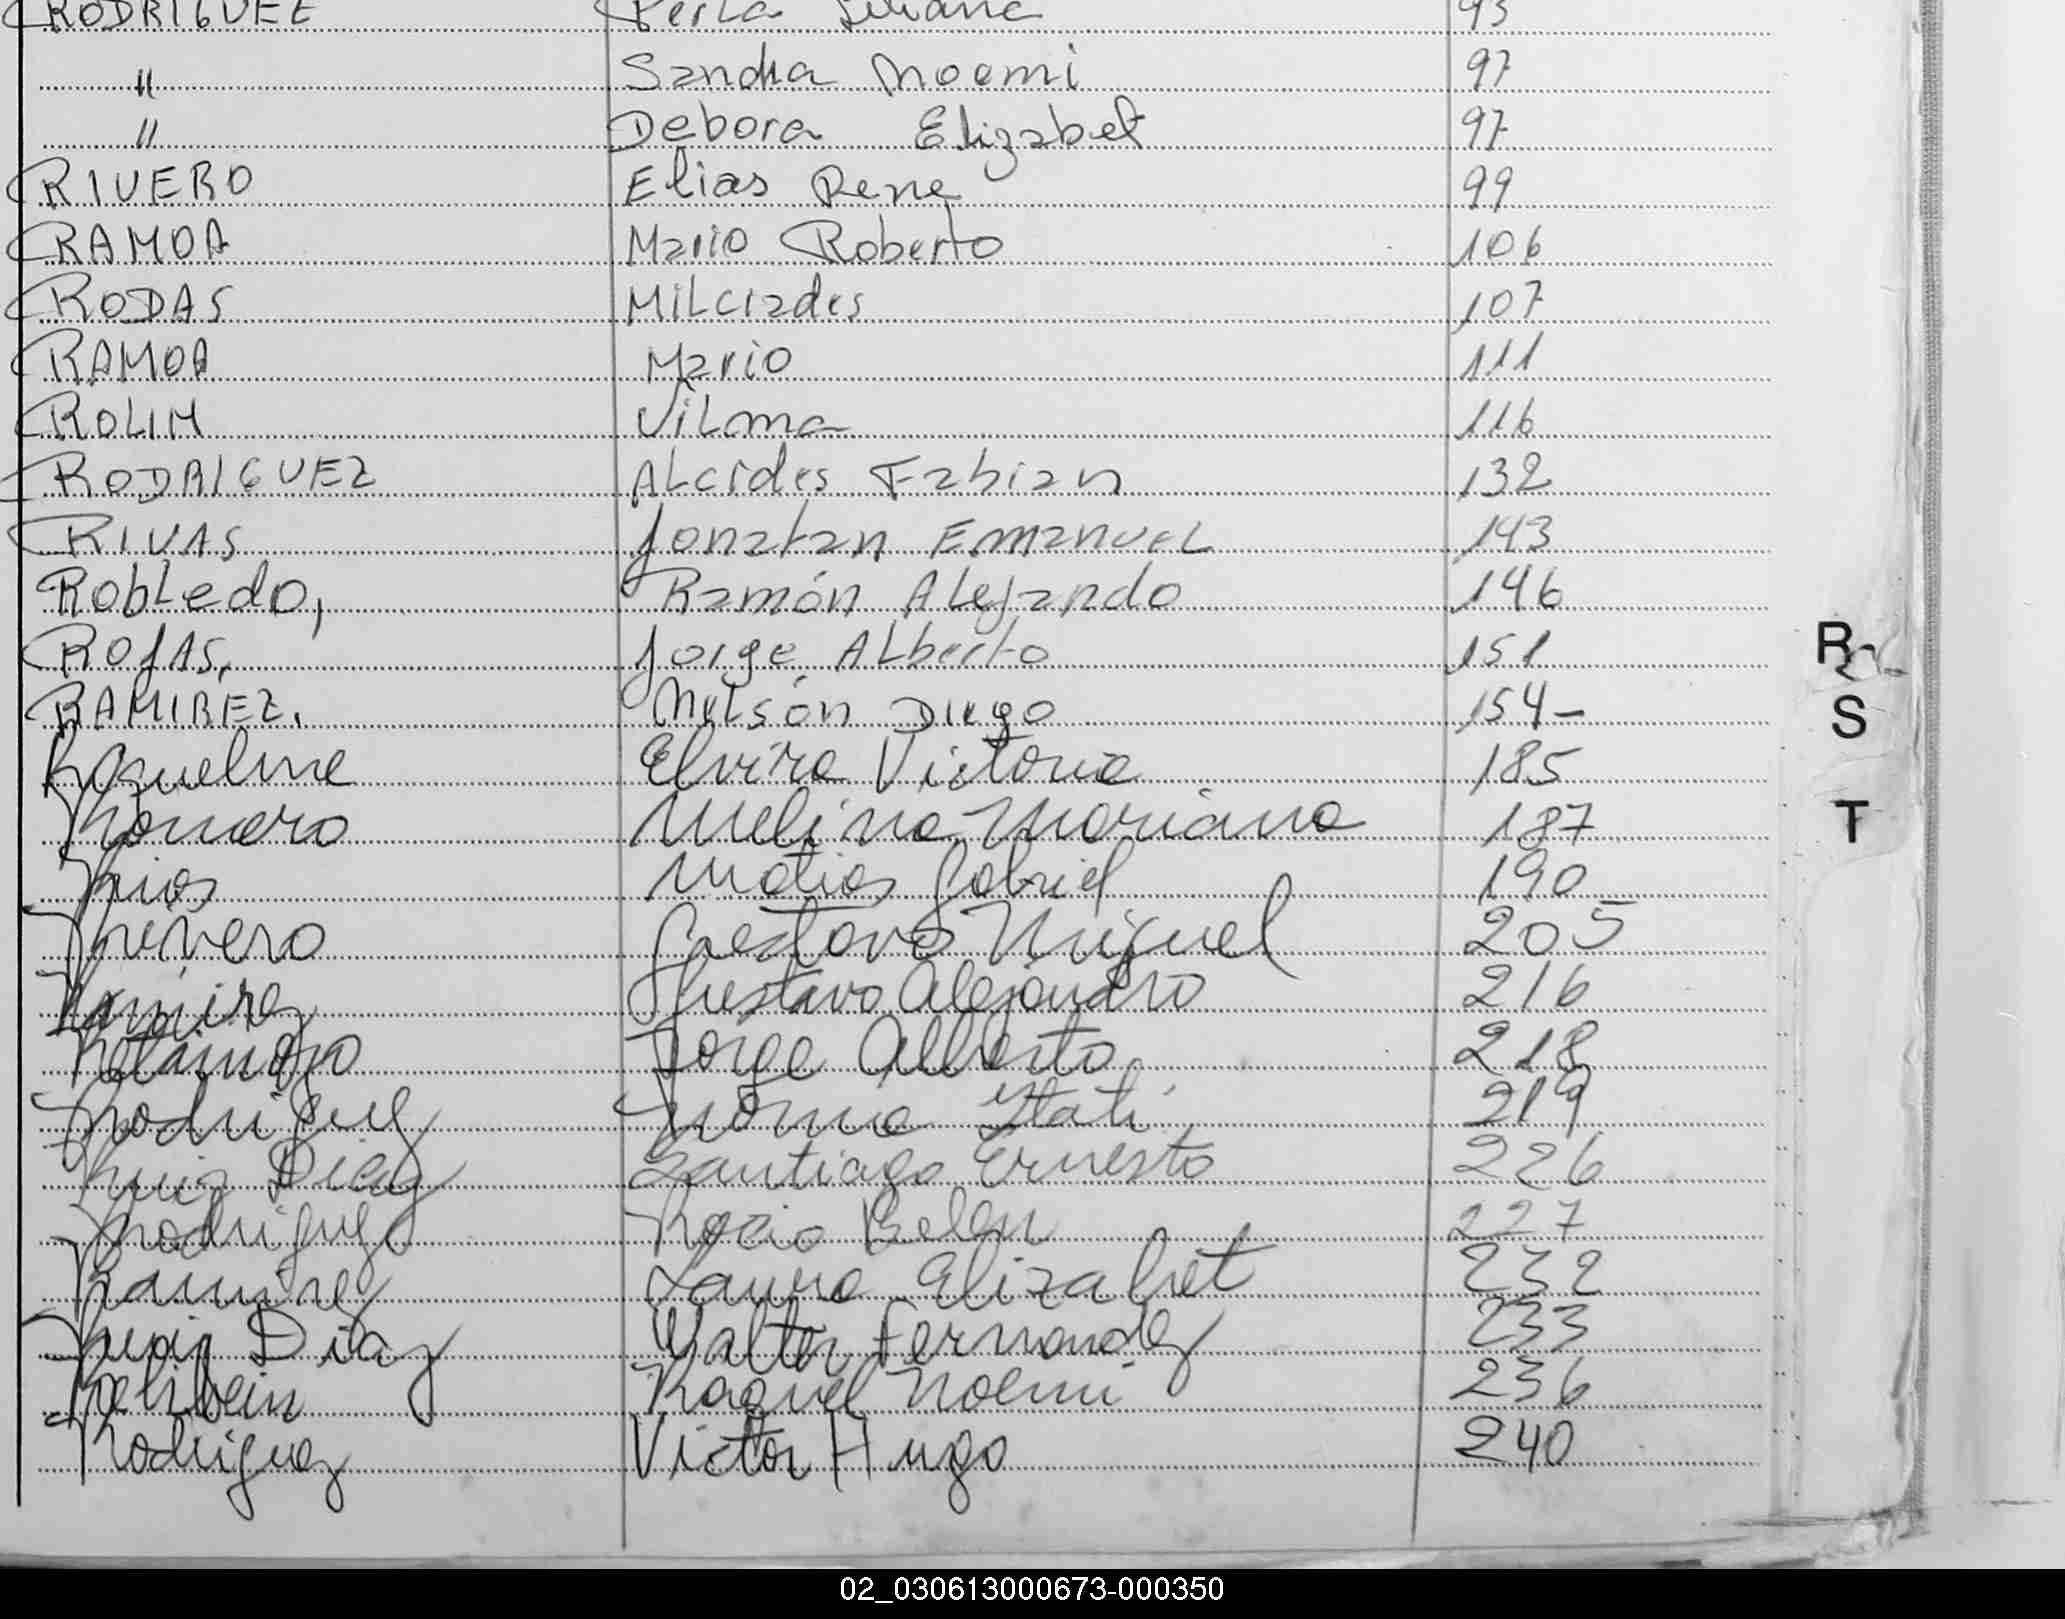 RODRIGUEZ Perla Liliana 93
" Sandra Noemi 97
" Debora Elizabet 97
RIVERO Elias Rene 99
RAMOA Mario Roberto 106
RODAS Milciades 107
RAMOA Mario 111
ROLIM Vilma 116
RODRIGUEZ Alcides Fabian 132
RIVAS Jonatan Emanuel 143
Robledo, Ramón Alejando 146
ROJAS, Jorge Alberto 151
RAMIREZ. Nelsón Diego 154-
Raqueline Elvira Victoria 185
Romero Melina Mariana 187
Rios Matias Gabriel 190
Rivero Gustavo Miguel 205
Ramirez Gustavo Alejandro 216
Retamozo Jorge Alberto 218
Rodriguez Norma Itati 219
Ruiz Diaz Santiago Ernesto 226
Rodriguez Rocio Belen 227
Ramirez Laura Elizabet 232
Ruiz Diaz Walter Fernandez 233
Raquel Noemi 236
Rodriguez Victor Hugo 240
R
S
T
02_030613000673-000350